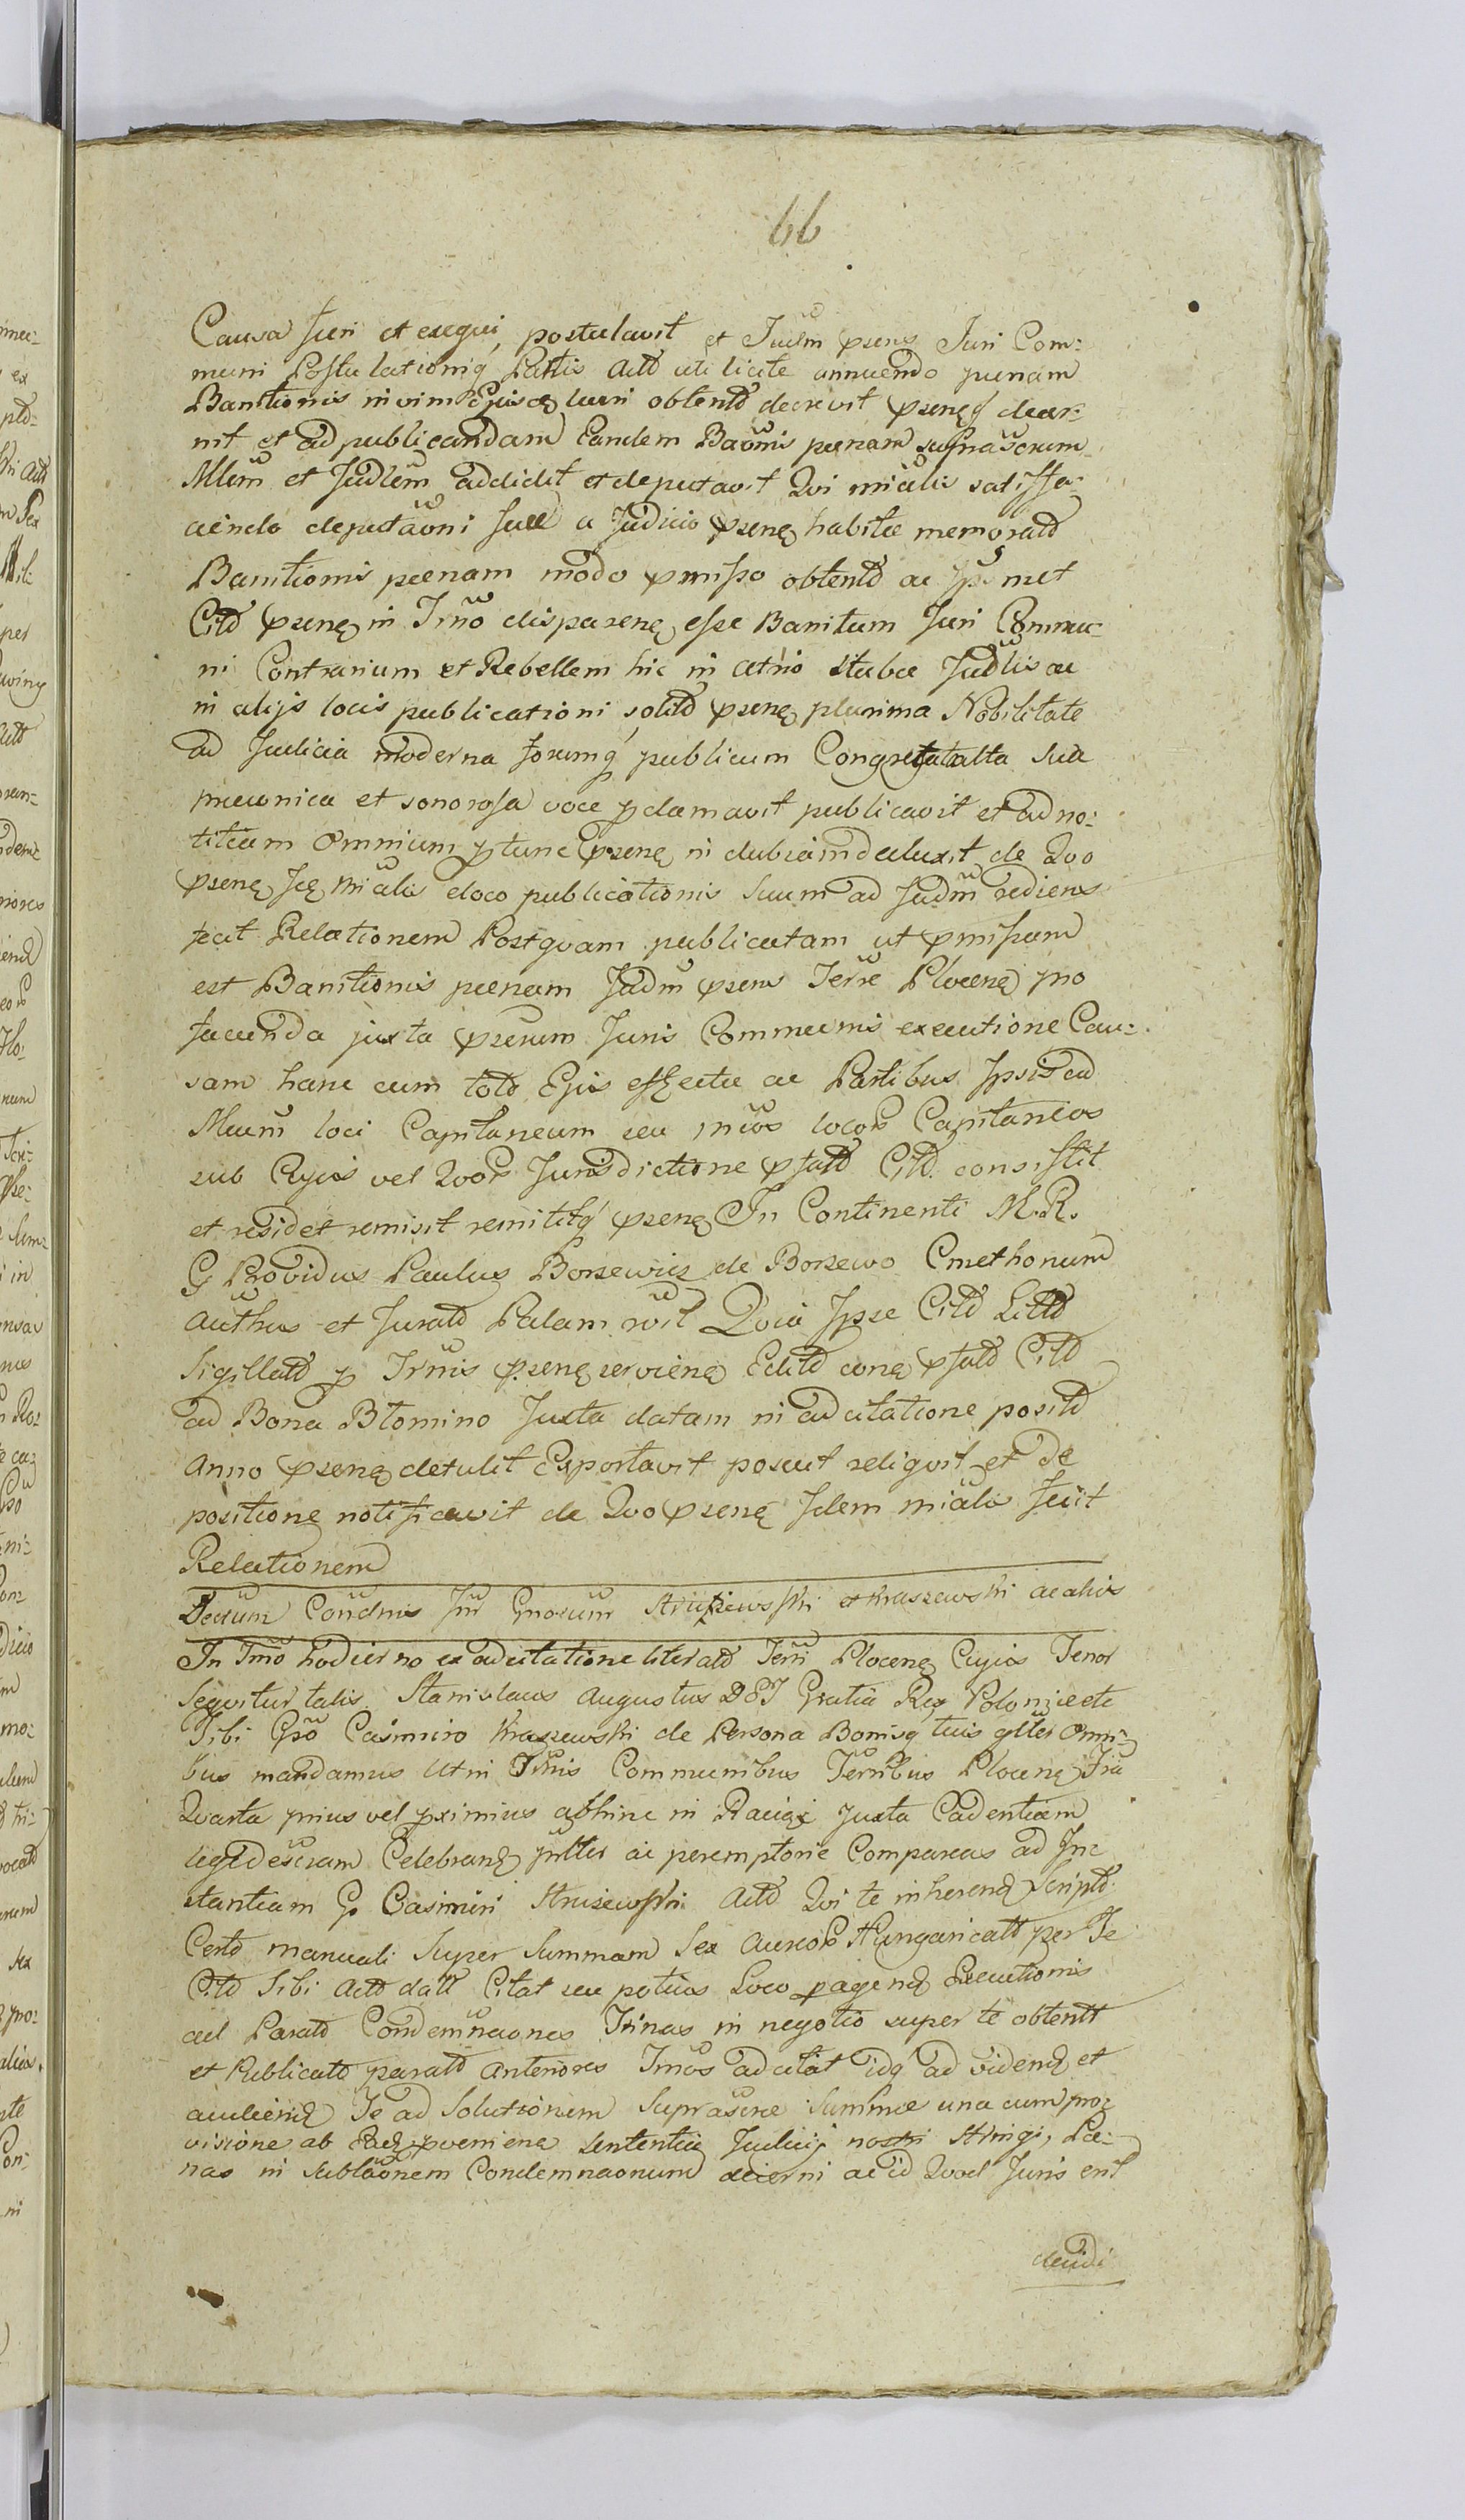 66
Causa Juri et exequi, postulavit et Judm pseng Juri Com:
muni Postulationiq Partis Actt uti licite annuendo paenam
Banitionis in vim Ejusce lucri obtentt decrevit psenęq decer:
nit et ad publicandam Eandem Baonis paenam
Mlem et Judlem addidit et deputavit Qui mialis satisffa:
ciendo deputaoni suae a Judicio pseną habitae memoratt
Banitionis paenam modo pmisso obtentt ac Ips met
Citt pseną in Tmo dispareną esse Banitum Juri Commu:
ni Contrarium et Rebellem hic in atrio stubae Judlis ac
in alijs locis publicationi solitt pseną plurima Nobilitate
ad Judicia moderna forumq publicum Congregata alta sua
praeconica et sonorosa voce pclamavit publicavit et ad no:
titiam Omnium ptunc pseną indubiam deduxit de Quo
pseną Ipę mialis e loco publicationis suum ad Judm rediens
fecit Relationem Postquam publicatam ut pmissum
est Banitionis paenam Judm psens Terre Ploceną pro
facienda juxta pserum Juris Communis executione Cau:
sam hanc cum toto Ejus effectu ac Partibus Ipsis ad
Mcum loci Capitaneum seu mcos locor Capitaneos
sub Cujus vel Quor Jurisdictione pfatt Citt consistit
et residet remisit remititq pseną In Continenti M.R.
G Providus Paulus Borzewicz de Borzewo Cmethonum
authus et Juratt Palam rvit Quia Ipse Citt Littt
Sigillatt p Trmis pseną serviena Editt coną pfatt Citt
ad Bona Blomino Juxta datam in adcitatione positt
Anno pseną detulit Exportavit posuit reliqvit et De
positione notificavit de Quo pseną Idem mialis fecit
Relationem
Decrum Condnis Inr Gnorum Struzewski et Kraszewski ac alios
In Tmo hodierno ex adcitatione literatt Terri Ploceną Cujus Tenor
Seqvitur talis. Stanislaus Augustus DEI Gratia Rex Polonize etc
Tibi Gso Casimiro Kraszewski de Persona Bonisq tuis gltes Omni:
bus mandamus Ut in Tmis Communibus Terribus Ploceną Fria
Qvarta prius vel pximius abhinc in Raciąż Juxta Cadentiam
Celebrand pnltes ac peremptorie Compareas ad Ins
stantiam G. Casimiri Struzewski Actt Qui te inherend Scriptt
Certo manuali Super Summam Sex Aureor Hungaricatt per Te
Citt Sibi Actt datt Citat seu potius Loco pagend Executionis
ad Paratt Condemnaones Trinas in negotio super te obtentt
et Publicatt paratt Anteriores Tmos adcitat idq ad videnđ et
audienđ Te ad Solutionem Suprascne Summae una cum pro:
visione ab Eadę pveniena sententia Judicij nostri stringi, Pae:
nas in sublaonem Condemnaonum decerni ac id Quod Juris erit
decidi